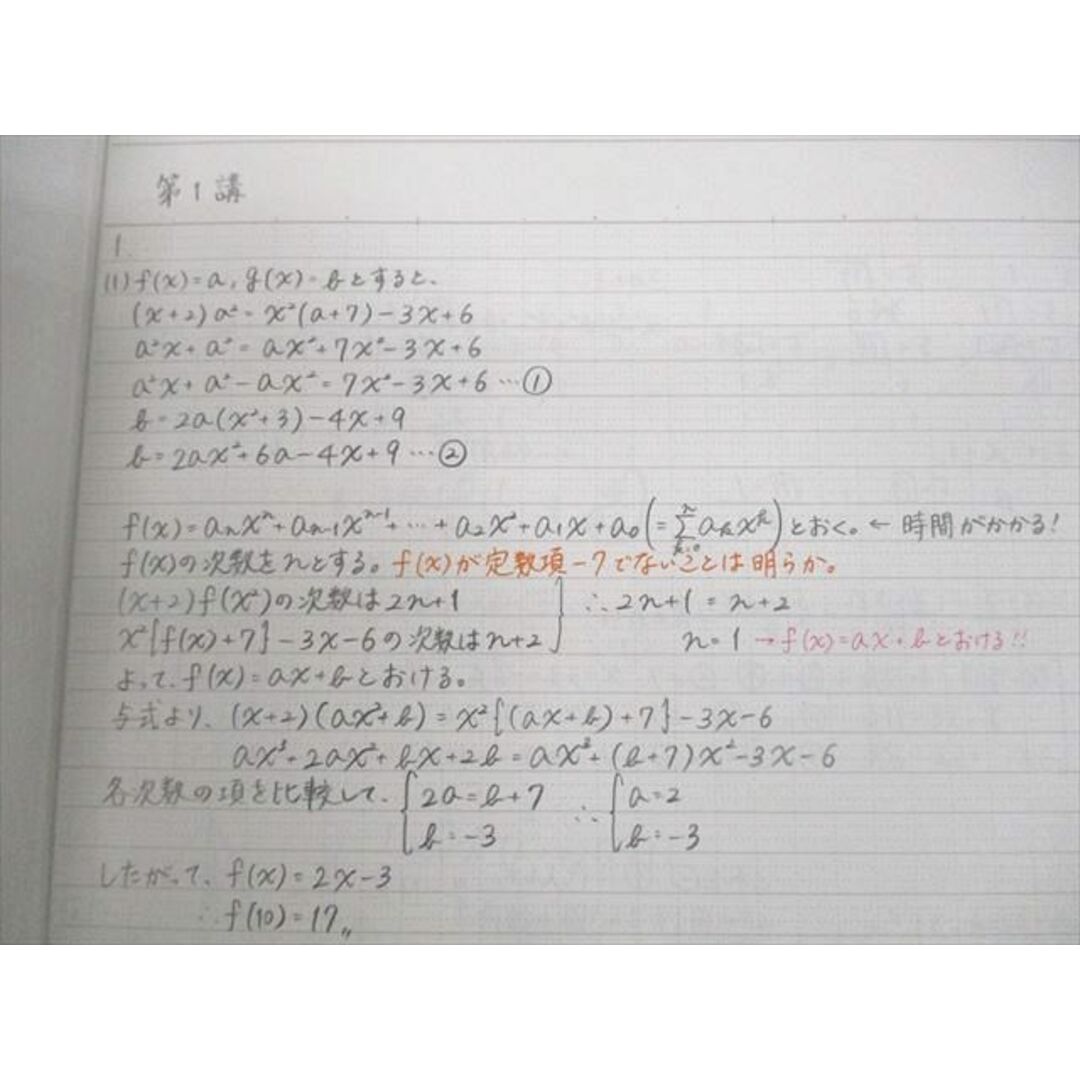 第1講
1.
(1) f(x)=a, g(x)=bとすると、
(x+2)a²=x²(a+7)-3x+6
a²x+a²=ax²+7x²-3x+6
a²x+a²-ax²=7x²-3x+6…①
b=2a(x²+3)-4x+9
b=2ax²+6a-4x+9…②
f(x)=aₙxⁿ+aₙ₋₁xⁿ⁻¹+…+a₂x²+a₁x+a₀(=Σ[k=0→n]aₖxᵏ)とおく。←時間がかかる!
f(x)の次数をnとする。f(x)が定数項-7でないことは明らか。
(x+2)f(x²)の次数は2n+1 ∴2n+1=n+2
x²{f(x)+7}-3x-6の次数はn+2 n=1→f(x)=ax+bとおける!!
よって、f(x)=ax+bとおける。
与式より、(x+2)(ax²+b)=x²{(ax+b)+7}-3x-6
ax³+2ax²+bx+2b=ax³+(b+7)x²-3x-6
各次数の項を比較して、{2a=b+7 ∴{a=2
b=-3 b=-3
したがって、f(x)=2x-3
∴f(10)=17〃